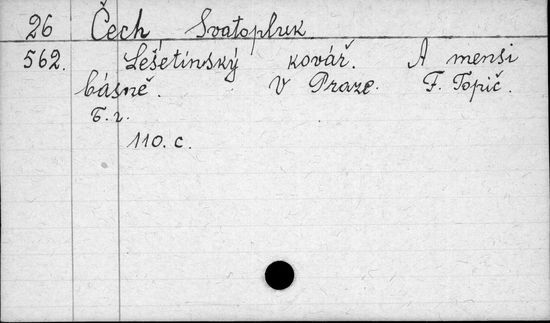 26 Čech, Svatopluk
562. Lešetínský kovář. A menši
básně. V Praze. F. Topič.
b.r.
110. c.